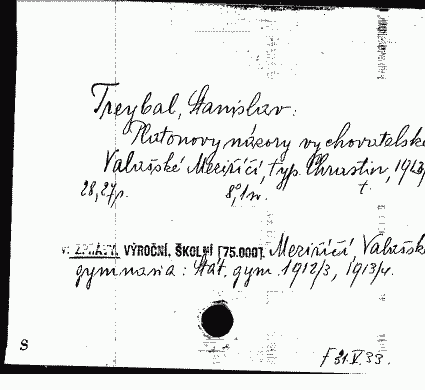 Treybal, Stanislav:
Platonovy názory vychovatelské
Valašské Meziříčí, typ. Chrastin, 1913/
28, 27 p. 8°, 1 n. t.
v: ZPRÁVA VÝROČNÍ, ŠKOLNÍ [75.000]. Meziříčí, Valašské
gymnasia: Stát. gym. 1912/3, 1913/4.
8 f 31.V.33.